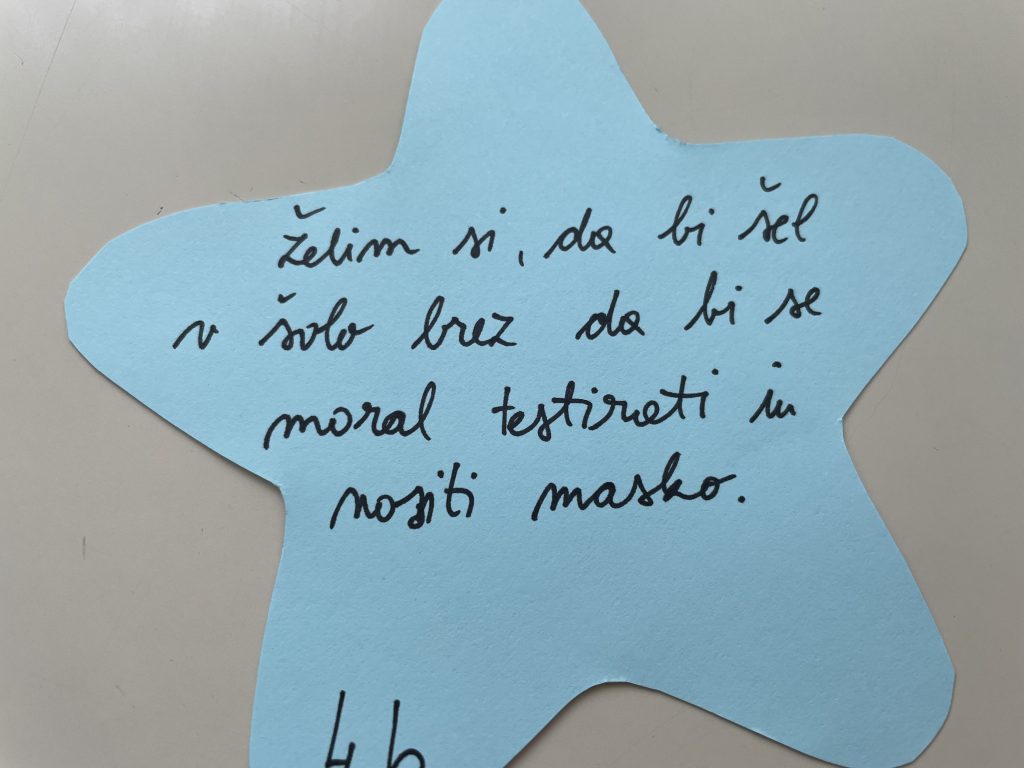 Želim si, da bi šel
v šolo brez da bi se
moral testirati in
nositi masko.
4.b